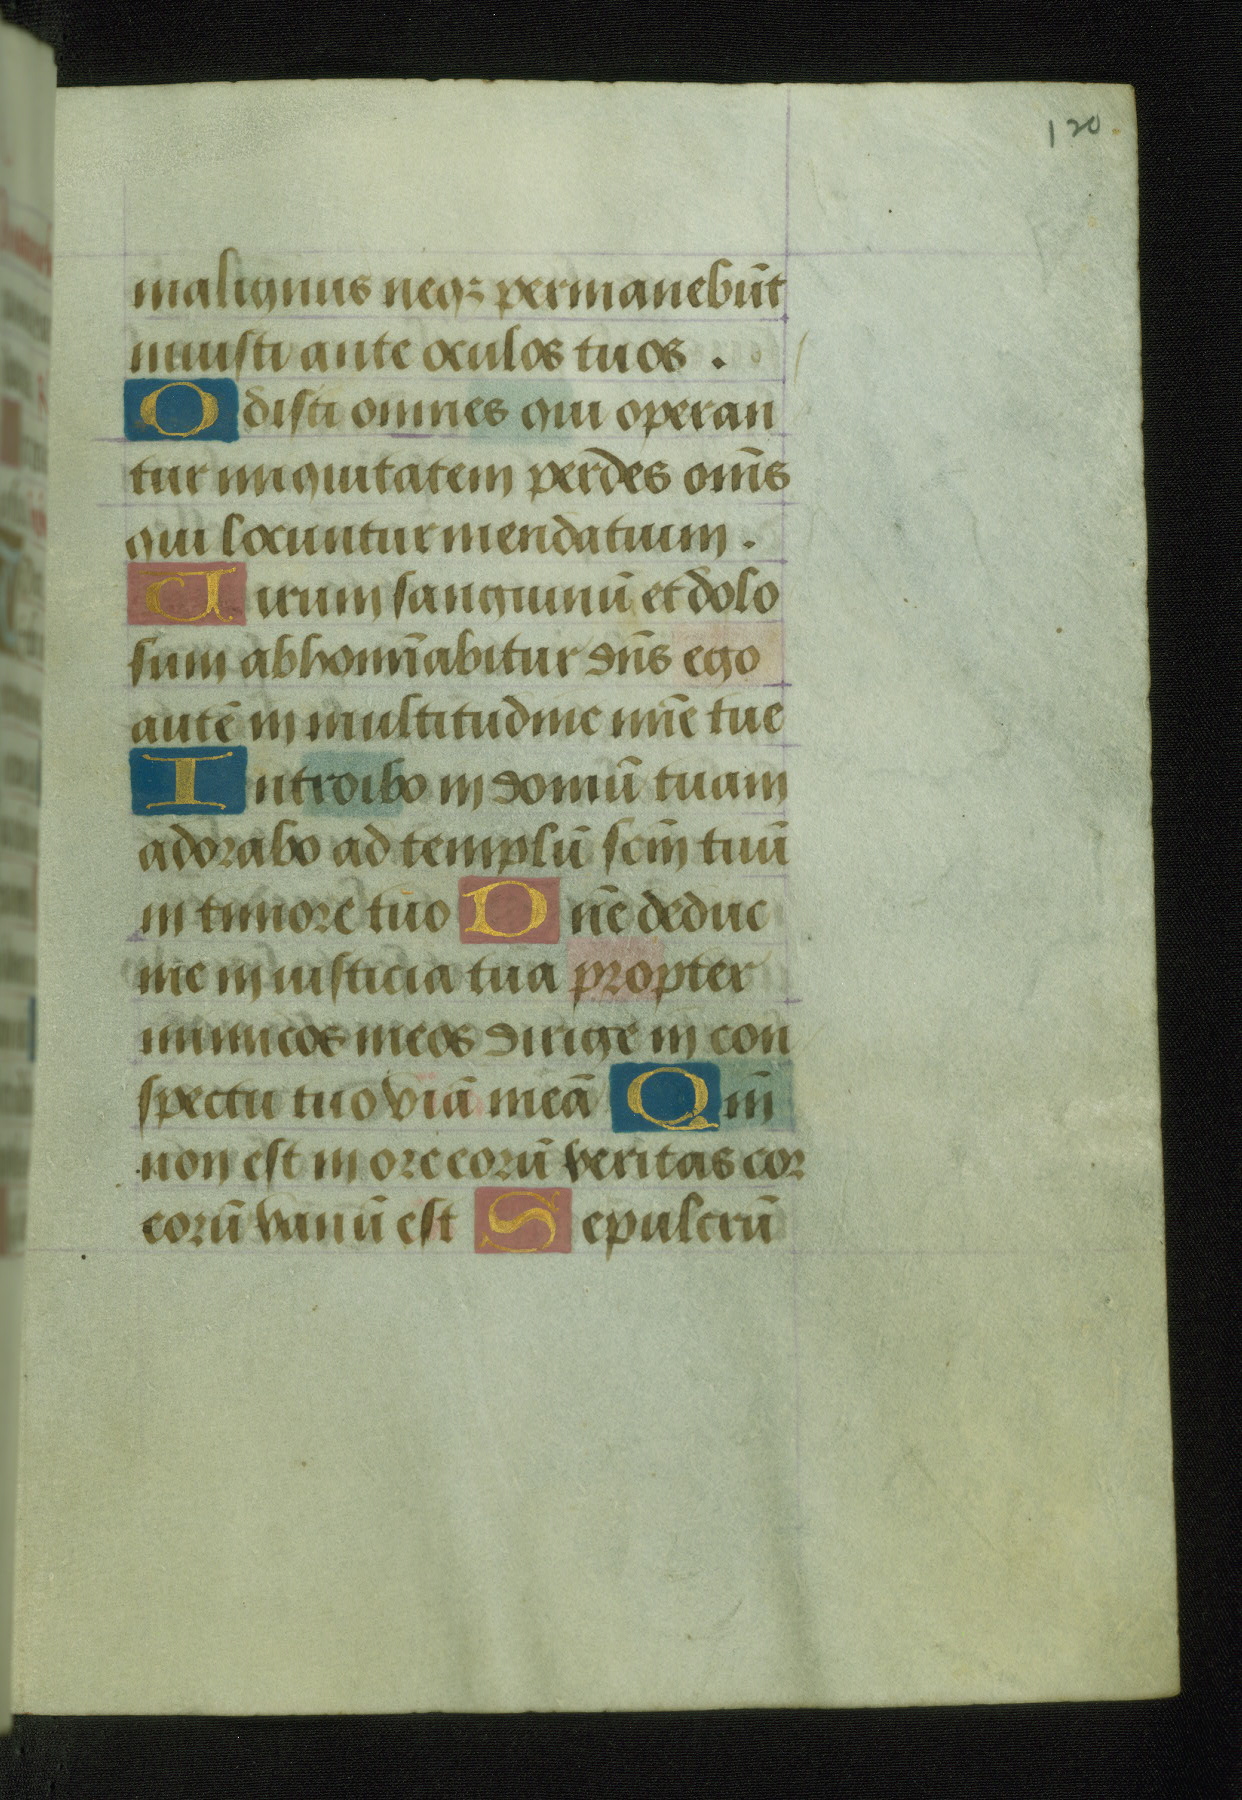 120
malignus neqꝫ permanebūt
iniusti ante oculos tuos .
Odisti omnes qui operan
tur iniquitatem perdes om̄s
qui locuntur mendatium .
Uirum sanguinū et dolo
sum abhomīabitur dn̄s ego
autē in multitudine mīe tue
Introibo in domū tuam
adorabo ad templū scm̄ tuū
in timore tuo Dn̄e deduc
me in iusticia tua propter
inimicos meos dirige in con
spectu tuo viā meā Qm̄
non est in ore eorū veritas cor
eorū vanū est Sepulcrū